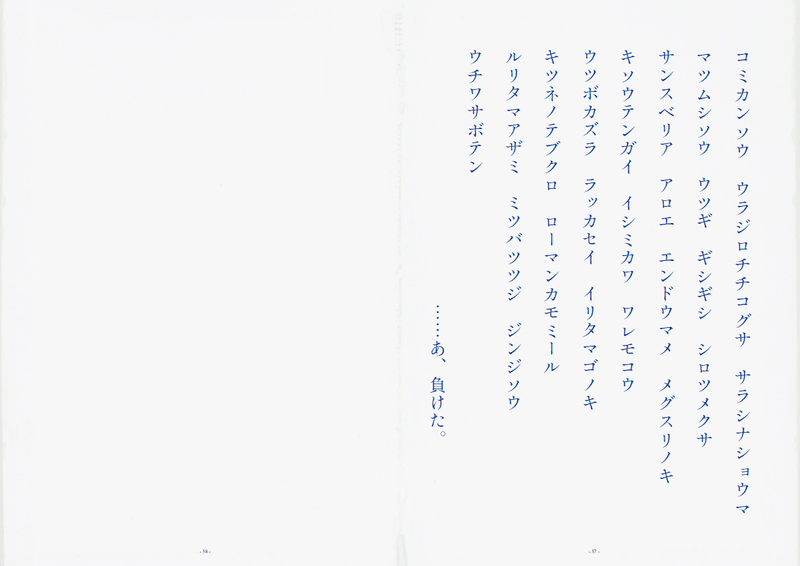 コミカンソウ　ウラジロチチコグサ　サラシナショウマ
マツムシソウ　ウツギ　ギシギシ　シロツメクサ
サンスベリア　アロエ　エンドウマメ　メグスリノキ
キソウテンガイ　イシミカワ　ワレモコウ
ウツボカズラ　ラッカセイ　イリタマゴノキ
キツネノテブクロ　ローマンカモミール
ルリタマアザミ　ミツバツツジ　ジンジソウ
ウチワサボテン
……あ、負けた。
- 17 -